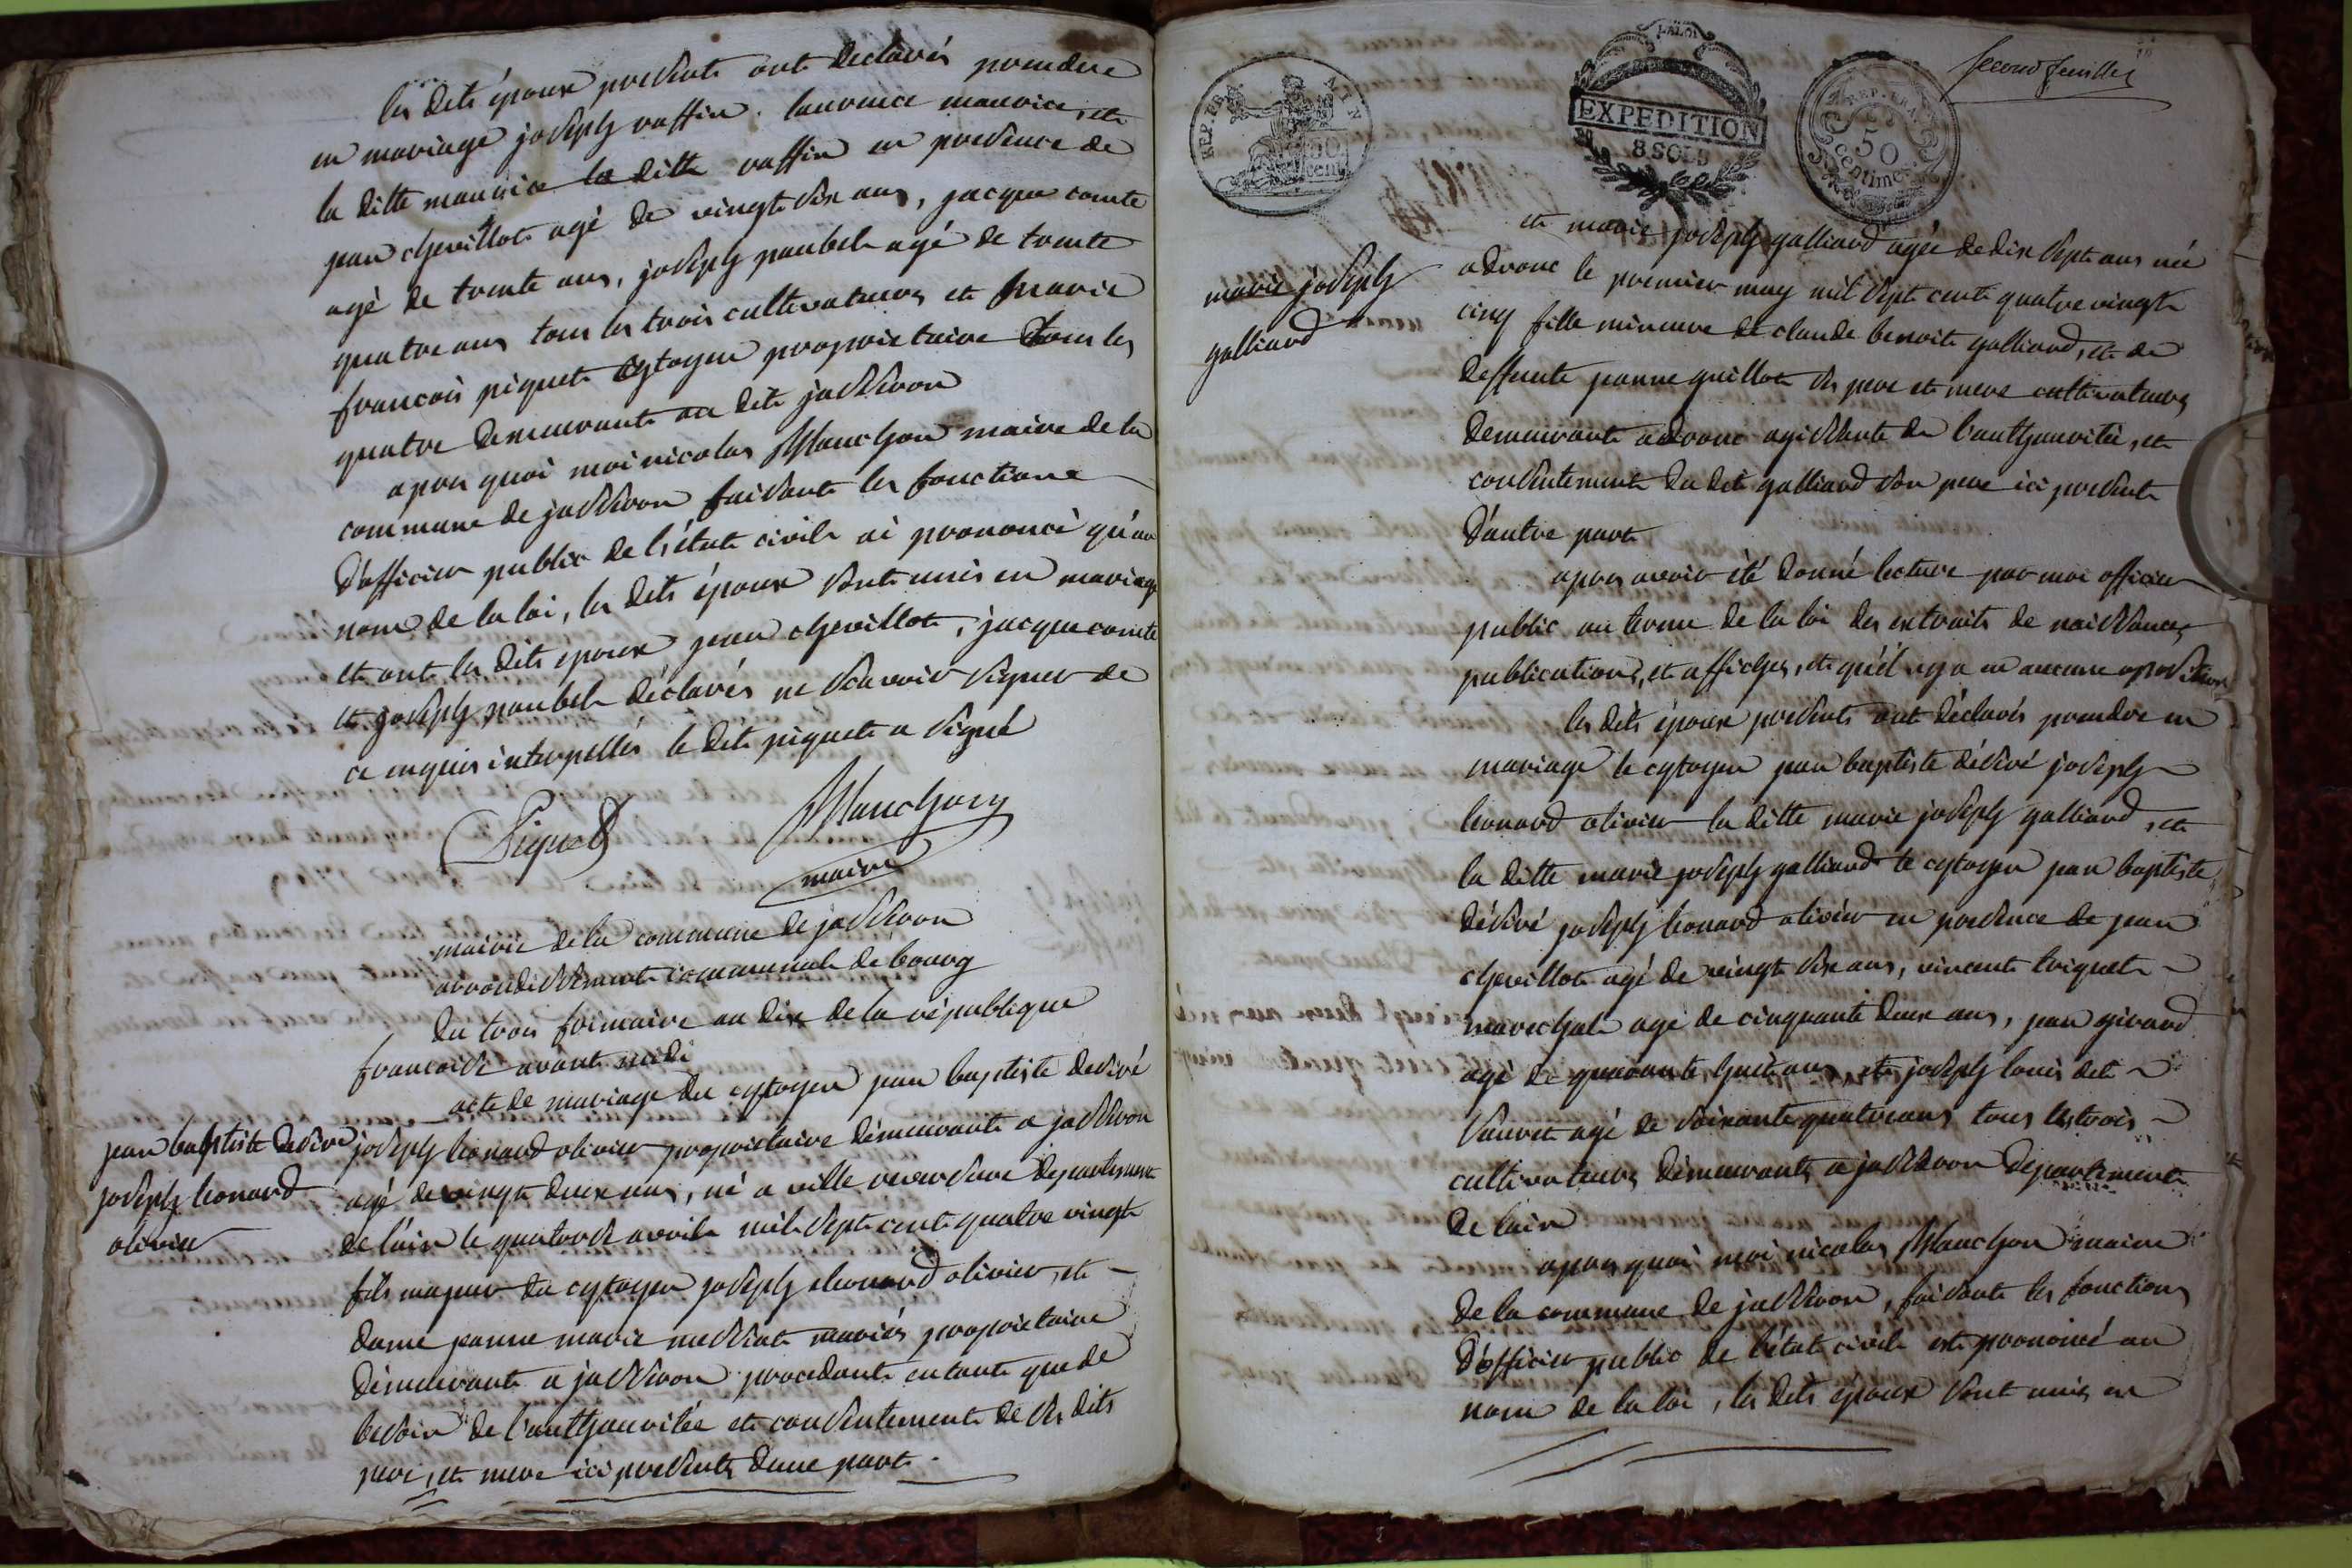 les dits époux present ont declarés prendre
en mariage joseph raffin. laurence maurice, et
la ditte maurice le ditte raffin en presence de
jean chevillot agé de vingt six ans, jacque comte
agé de trente ans, joseph paubel agé de trente
quatre ans tous les trois cultivateurs et marie
francois piquet cytoyen proprietaire tous les
quatre demeurant au dit jasseron
apres quoi moi nicolas Manchon maire de la
commune de jasseron faisant les fonctions
d'officier public de l'état civil ai prononcé qu'au
nom de la loi, les dits époux sont unis en mariage
et ont les dits epoux jean chevillot, jacque comte
et joseph paubel déclarés ne scavoir signer de
ce enquis interpellés le dit piquet a signé
Piquet Manchon
maire
mairie de la commune de jasseron
arrondissement communal de bourg
du trois frimaire an dix de la république
francoise avant midi
acte de mariage du cytoyen jean baptiste desiré
jean baptiste desiré
joseph leonard
olivier
joseph leonard olivier proprietaire demeurant a jasseron
agé de vingt deux ans, né a ville reversure departement
de l'ain le quatorze avril mil sept cent quatre vingt
fils majeur du cytoyen joseph leonard olivier, et
dame jeanne marie messiat mariés proprietaire
demeurant a jasseron procedant en tant que de
besoin de l'authauritée et consentement de ses dits
pere, et mere ici presents d'une part.
REP. FRA
50
cent
LA LOI
EXPEDITION
8 SOLS
REP. FRA
50
centime
second feuillet
marie joseph
galliard
et marie joseph galliard agée de dix sept ans née
a drom le premier may mil sept cent quatre vingt
cinq fille mineure de claude benoit galliard, et de
deffunte jeanne guillot ses pere et mere cultivateurs
demeurant a drom agissante de l'authauritée, et
consentement du dit galliard son pere ici present
d'autre part
apres avoir été donné lecture par moi officier
public au terme de la loi des extraits de naissances
publications, et affiches, et qu'il n'y a eu aucune oposition
les dits époux presents ont déclarés prendre en
mariage le cytoyen jean baptiste désiré joseph
leonard olivier la ditte marie joseph galliard, et
la ditte marie joseph galliard le cytoyen jean baptiste
désiré joseph leonard olivier en presence de jean
chevillot agé de vingt six ans, vincent triquet
marechal agé de cinquante deux ans, jean girard
agé de quarante huit ans, et joseph louis det
vauret agé de soixante quatre ans tous les trois
cultivateurs demeurants a jasseron departement
de l'ain
apres quoi moi nicolas Manchon maire
de la commune de jasseron, faisant les fonctions
d'officier public de l'état civil est prononcé au
nom de la loi, les dits époux sont unis en